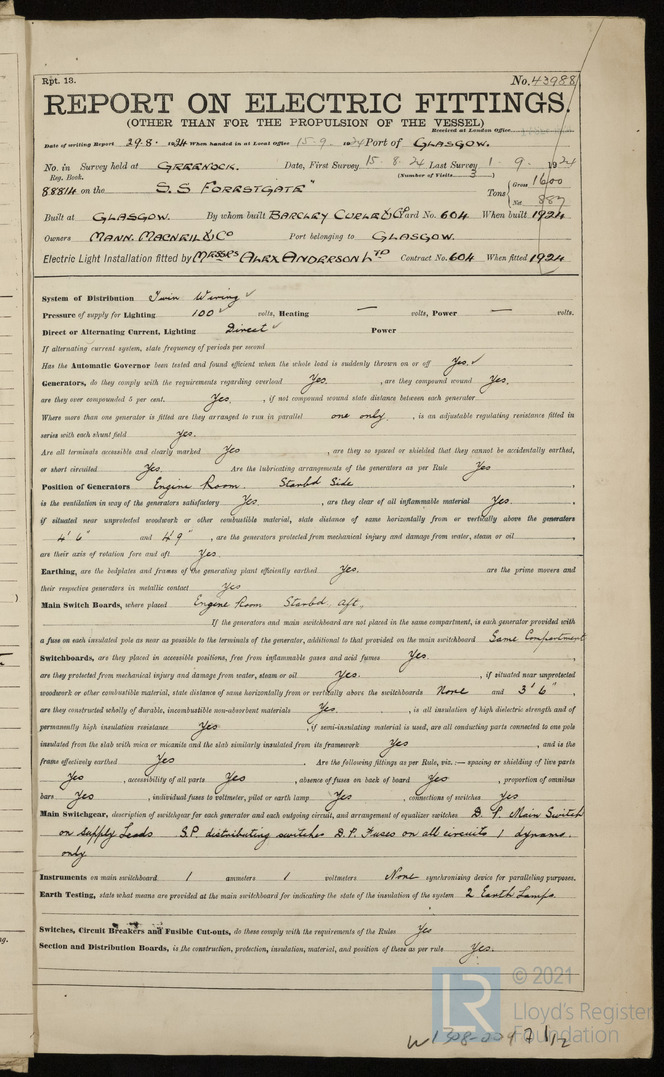 Rpt. 13.
No. 43988
REPORT ON ELECTRIC FITTINGS.
(OTHER THAN FOR THE PROPULSION OF THE VESSEL)
Received at London Office
Date of writing Report 29.8. 1924 When handed in at Local Office 15.9. 1924 Port of GLASGOW.
No. in Survey held at GREENOCK. Date, First Survey 15.8.24 Last Survey 1.9. 1924
Reg. Book. (Number of Visits 3)
88814 on the S.S FORESTGATE" Tons { Gross 1600
Net 887
Built at GLASGOW. By whom built BARCLEY CURLE & Co Yard No. 604 When built 1924
Owners MANN. MACNEIL & Co Port belonging to GLASGOW.
Electric Light Installation fitted by MESSRS ALEX ANDERSON LTD Contract No. 604 When fitted 1924
System of Distribution Twin Wiring
Pressure of supply for Lighting 100 volts, Heating — volts, Power — volts.
Direct or Alternating Current, Lighting Direct Power
If alternating current system, state frequency of periods per second
Has the Automatic Governor been tested and found efficient when the whole load is suddenly thrown on or off Yes.
Generators, do they comply with the requirements regarding overload Yes. , are they compound wound Yes.
are they over compounded 5 per cent. Yes. , if not compound wound state distance between each generator
Where more than one generator is fitted are they arranged to run in parallel one only , is an adjustable regulating resistance fitted in
series with each shunt field yes.
Are all terminals accessible and clearly marked Yes , are they so spaced or shielded that they cannot be accidentally earthed,
or short circuited Yes. Are the lubricating arrangements of the generators as per Rule Yes
Position of Generators Engine Room. Starbd Side
is the ventilation in way of the generators satisfactory Yes. , are they clear of all inflammable material Yes.
if situated near unprotected woodwork or other combustible material, state distance of same horizontally from or vertically above the generators
4' 6" and 4' 9" , are the generators protected from mechanical injury and damage from water, steam or oil
are their axis of rotation fore and aft Yes.
Earthing, are the bedplates and frames of the generating plant efficiently earthed Yes. are the prime movers and
their respective generators in metallic contact Yes
Main Switch Boards, where placed Engine Room Starbd. aft.
If the generators and main switchboard are not placed in the same compartment, is each generator provided with
a fuse on each insulated pole as near as possible to the terminals of the generator, additional to that provided on the main switchboard Same Compartment
Switchboards, are they placed in accessible positions, free from inflammable gases and acid fumes Yes.
are they protected from mechanical injury and damage from water, steam or oil Yes. , if situated near unprotected
woodwork or other combustible material, state distance of same horizontally from or vertically above the switchboards None and 3' 6" ,
are they constructed wholly of durable, incombustible non-absorbent materials Yes , is all insulation of high dielectric strength and of
permanently high insulation resistance Yes , if semi-insulating material is used, are all conducting parts connected to one pole
insulated from the slab with mica or micanite and the slab similarly insulated from its framework Yes , and is the
frame effectively earthed Yes . Are the following fittings as per Rule, viz.:— spacing or shielding of live parts
Yes , accessibility of all parts Yes , absence of fuses on back of board Yes , proportion of omnibus
bars Yes , individual fuses to voltmeter, pilot or earth lamp Yes , connections of switches Yes
Main Switchgear, description of switchgear for each generator and each outgoing circuit, and arrangement of equalizer switches D. P. Main Switch
on supply Leads S.P. distributing switches D.P. Fuses on all circuits 1 dynamo.
only
Instruments on main switchboard 1 ammeters 1 voltmeters None synchronising device for paralleling purposes.
Earth Testing, state what means are provided at the main switchboard for indicating the state of the insulation of the system 2 Earth Lamps.
Switches, Circuit Breakers and Fusible Cut-outs, do these comply with the requirements of the Rules Yes
Section and Distribution Boards, is the construction, protection, insulation, material, and position of these as per rule Yes.
LR
© 2021
Lloyd's Register
Foundation
W1308-0097 1/2